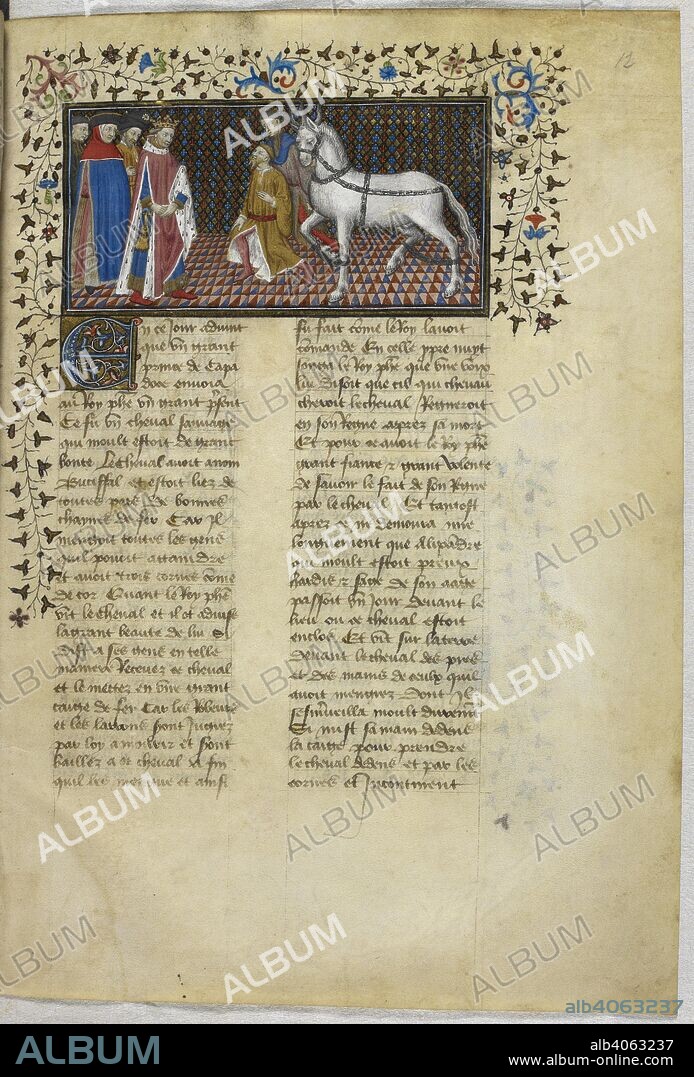 12
En ce jour aduint
que vn grant
prince de Capa
doce enuoia
au Roy phe vn grant present
Ce fu vn cheual sauuage
qui moult estoit de grant
bonte Le cheual auoit a nom
Bucifal et estoit liez de
toutes pars de bonnes
chaines de fer Car Il
mengoit toutes les gens
quil pouoit attaindre
et auoit trois cornes come
de cor Quant le Roy phe
vit le cheual et il ot aduise
la grant beaute de lui Si
dist a ses gens en telle
maniere Receuez ce cheual
et le mettez en vne grant
caige de fer Car les
et les larrons sont Jugiez
par loy a mourir et sont
bailliez a ce cheual a fin
quil les mengue et ainsi
fu fait come le Roy lauoit
comande En celle ppre nuyt
songa le Roy phe que vne voix
lui disoit que cil qui cheuau
cheroit le cheual Regneroit
en son Regne aprez sa mort
Et pour ce auoit le Roy phe
grant fiance et grant volente
de sauoir le fait de son Regne
par le cheual Et tantost
aprez ce ne demoura mie
longuement que Alixandre
qui moult estoit preux
hardis et sage de son aage
passoit vn Jour deuant le
lieu ou ce cheual estoit
enclos Et vit sur la terre
deuant le cheual des piez
et des mains de ceulx quil
auoit mengiez Dont Il
se smerueilla moult durement
Si mist sa main dedens
la caige pour prendre
le cheual dedens et par les
cornes et Incontinent
ALBUM
alb4063237
ALBUM
alb4063237
www.album-online.com